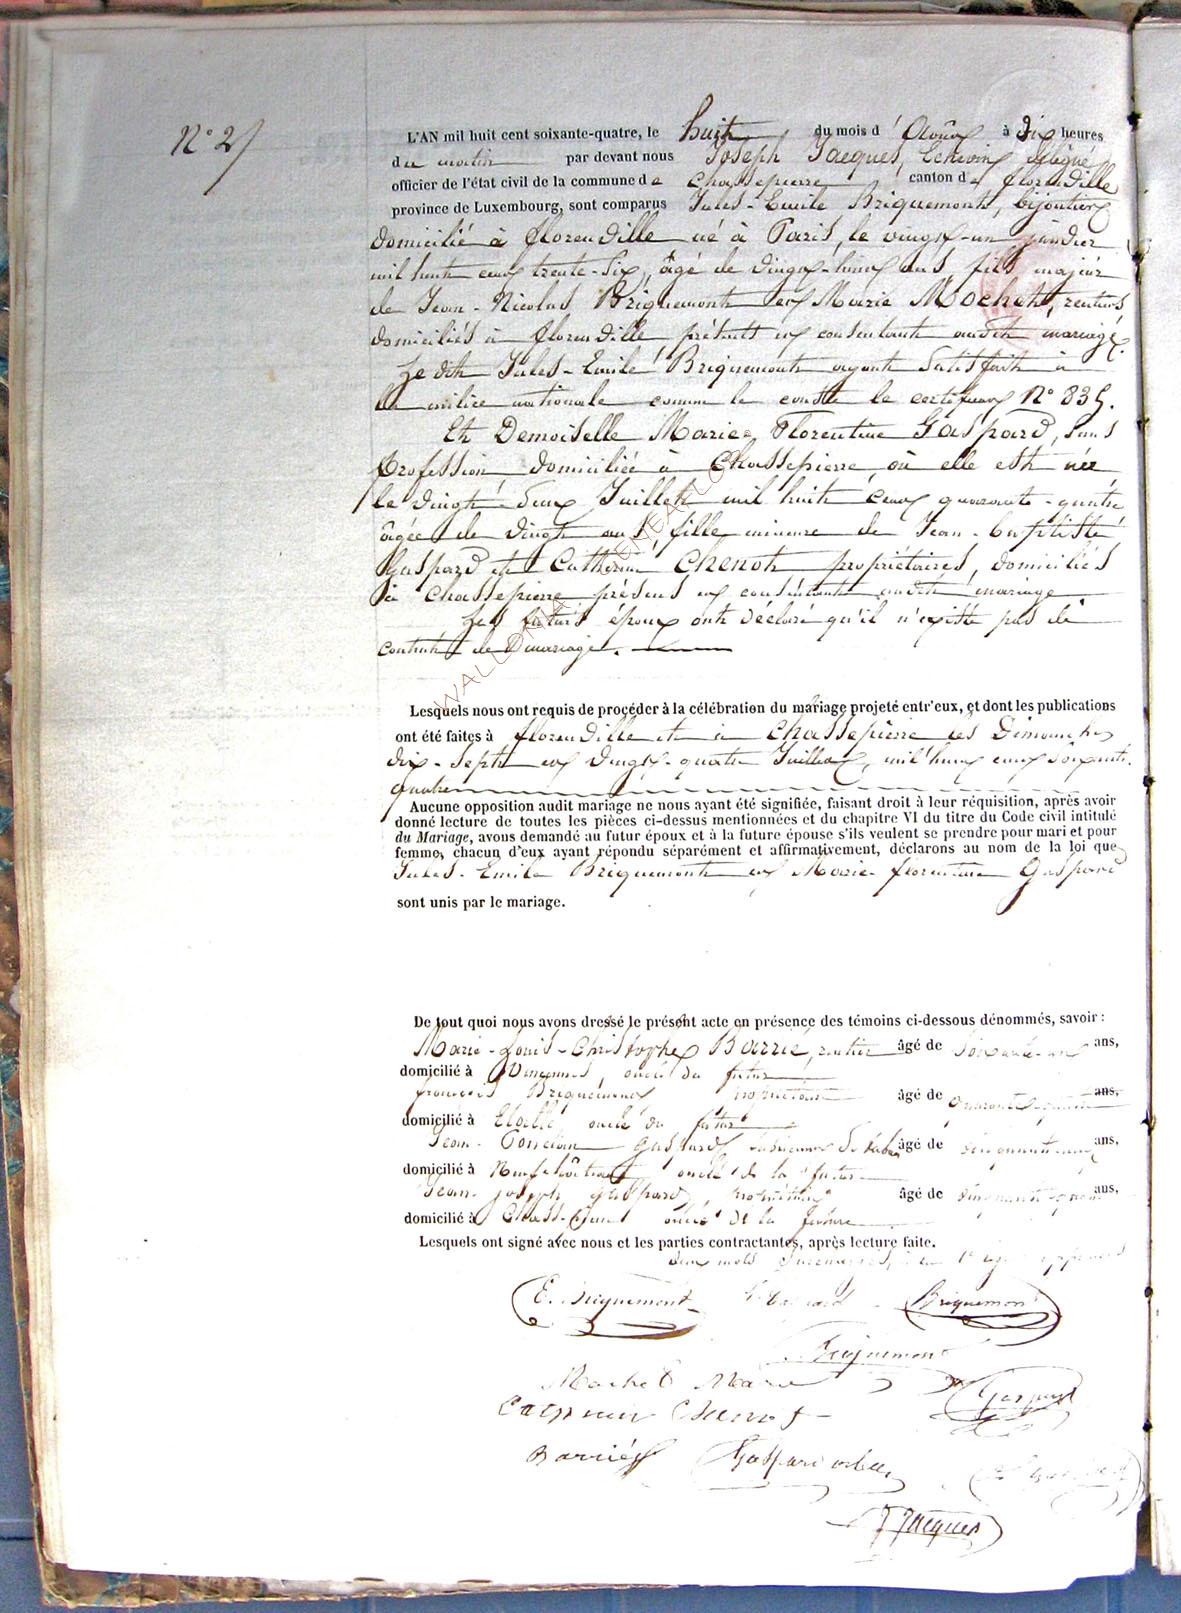 N° 2
L'AN mil huit cent soixante-quatre, le huit du mois d'Août à dix heures
du matin par devant nous Joseph Jacques, Echevin délégué
officier de l'état civil de la commune de Chassepierre canton de florenville
province de Luxembourg, sont comparus Jules-Emile Briquemont, bijoutier
domicilié à florenville né à Paris, le vingt-un janvier
mil huit cent trente-six, âgé de vingt-huit ans, fils majeur
de Jean-Nicolas Briquemont et Marie Mochet, rentiers
domiciliés à florenville présents et consentant audit mariage.
Le dit Jules-Emile Briquemont ayant satisfait à
la milice nationale comme le constte le certificat N° 835.
Et Demoiselle Marie-Florentine Gaspard, sans
profession, domiciliée à Chassepierre où elle est née
le vingt-deux Juillet mil huit cent quarante-quatre
âgée de vingt ans, fille mineure de Jean-baptiste
Gaspard et Catherine Chenot propriétaires, domiciliés
à Chassepierre présens et consentant audit mariage
Les futurs époux ont déclaré qu'il n'existe pas de
contrat de mariage.
Lesquels nous ont requis de procéder à la célébration du mariage projeté entr'eux, et dont les publications
ont été faites à florenville et à Chassepierre les Dimanches
dix-sept et vingt-quatre Juillet, mil huit cent soixante
quatre
Aucune opposition audit mariage ne nous ayant été signifiée, faisant droit à leur réquisition, après avoir
donné lecture de toutes les pièces ci-dessus mentionnées et du chapitre VI du titre du Code civil intitulé
du Mariage, avous demandé au futur époux et à la future épouse s'ils veulent se prendre pour mari et pour
femme, chacun d'eux ayant répondu séparément et affirmativement, déclarons au nom de la loi que
Jules-Emile Briquemont et Marie-florentine Gaspard
sont unis par le mariage.
De tout quoi nous avons dressé le présent acte en présence des témoins ci-dessous dénommés, savoir :
Marie-Louis-Christophe Barrié, rentier âgé de soixante ans,
domicilié à Vincennes, oncle du futur
françois Briquemont propriétaire âgé de quarante ans,
domicilié à oncle du futur
Jean- Gaspard âgé de cinquante ans,
domicilié à Neufchâteau oncle de la future
Jean-joseph gaspard, propriétaire âgé de cinquante ans,
domicilié à Chassepierre oncle de la future
Lesquels ont signé avec nous et les parties contractantes, après lecture faite.
deux mots
E. Briquemont Briquemont
Briquemont
Mochet Marie Gaspard
Chenot
Barrié Gaspard
J Jacques
WALLONIE